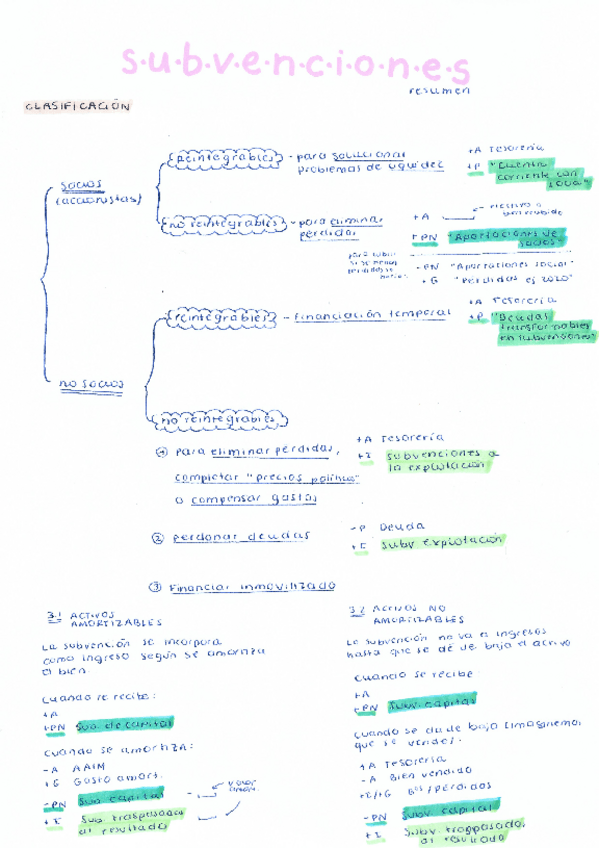 s·u·b·v·e·n·c·i·o·n·e·s
resumen
CLASIFICACIÓN
socios
(accionistas)
reintegrables
- para solucionar
problemas de liquidez
+A Tesorería
+P "Cuenta
corriente con
socios"
no reintegrables
- para eliminar
pérdidas
+A
efectivo o
bien recibido
+PN "Aportaciones de
socios"
-PN "Aportaciones social"
+G "Pérdidas ej 2020"
no socios
reintegrables
- Financiación temporal
+A Tesorería
+P "Deudas
transformables
en subvenciones"
no reintegrables
① para eliminar pérdidas,
completar "precios políticos"
o compensar gastos
+A Tesorería
+I subvenciones a
la explotación
② perdonar deudas
-P Deuda
+I subv explotación
③ Financiar inmovilizado
3.1 ACTIVOS
AMORTIZABLES
La subvención se incorpora
como ingreso según se amortiza
el bien.
cuando se recibe:
+A
+PN Sub de capital
cuando se amortiza:
-A AAIM
+G Gasto amort.
-PN Sub capital
valor
amort.
+I Sub traspasada
al resultado
3.2 ACTIVOS NO
AMORTIZABLES
La subvención no va a ingresos
hasta que se dé de baja el activo
cuando se recibe
+A
+PN Subv capital
cuando se da de baja (imaginemos
que se vende):
+A Tesorería
-A Bien vendido
+I/+G Bºs/pérdidas
-PN Subv capital
+I Subv traspasada
al resultado